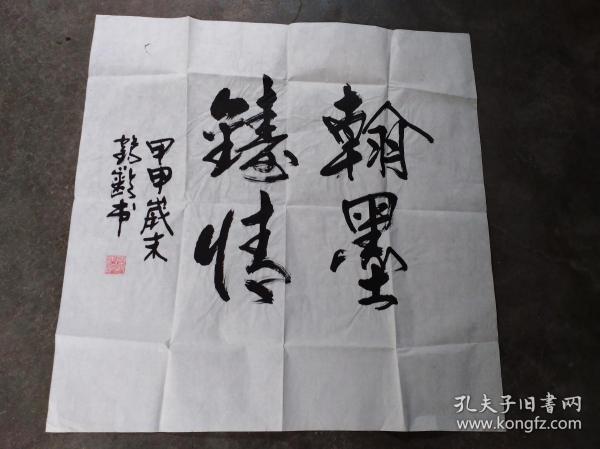 翰墨
鑄情
甲申歲末
鹤龄书
孔夫子旧書网
www.kongfz.com